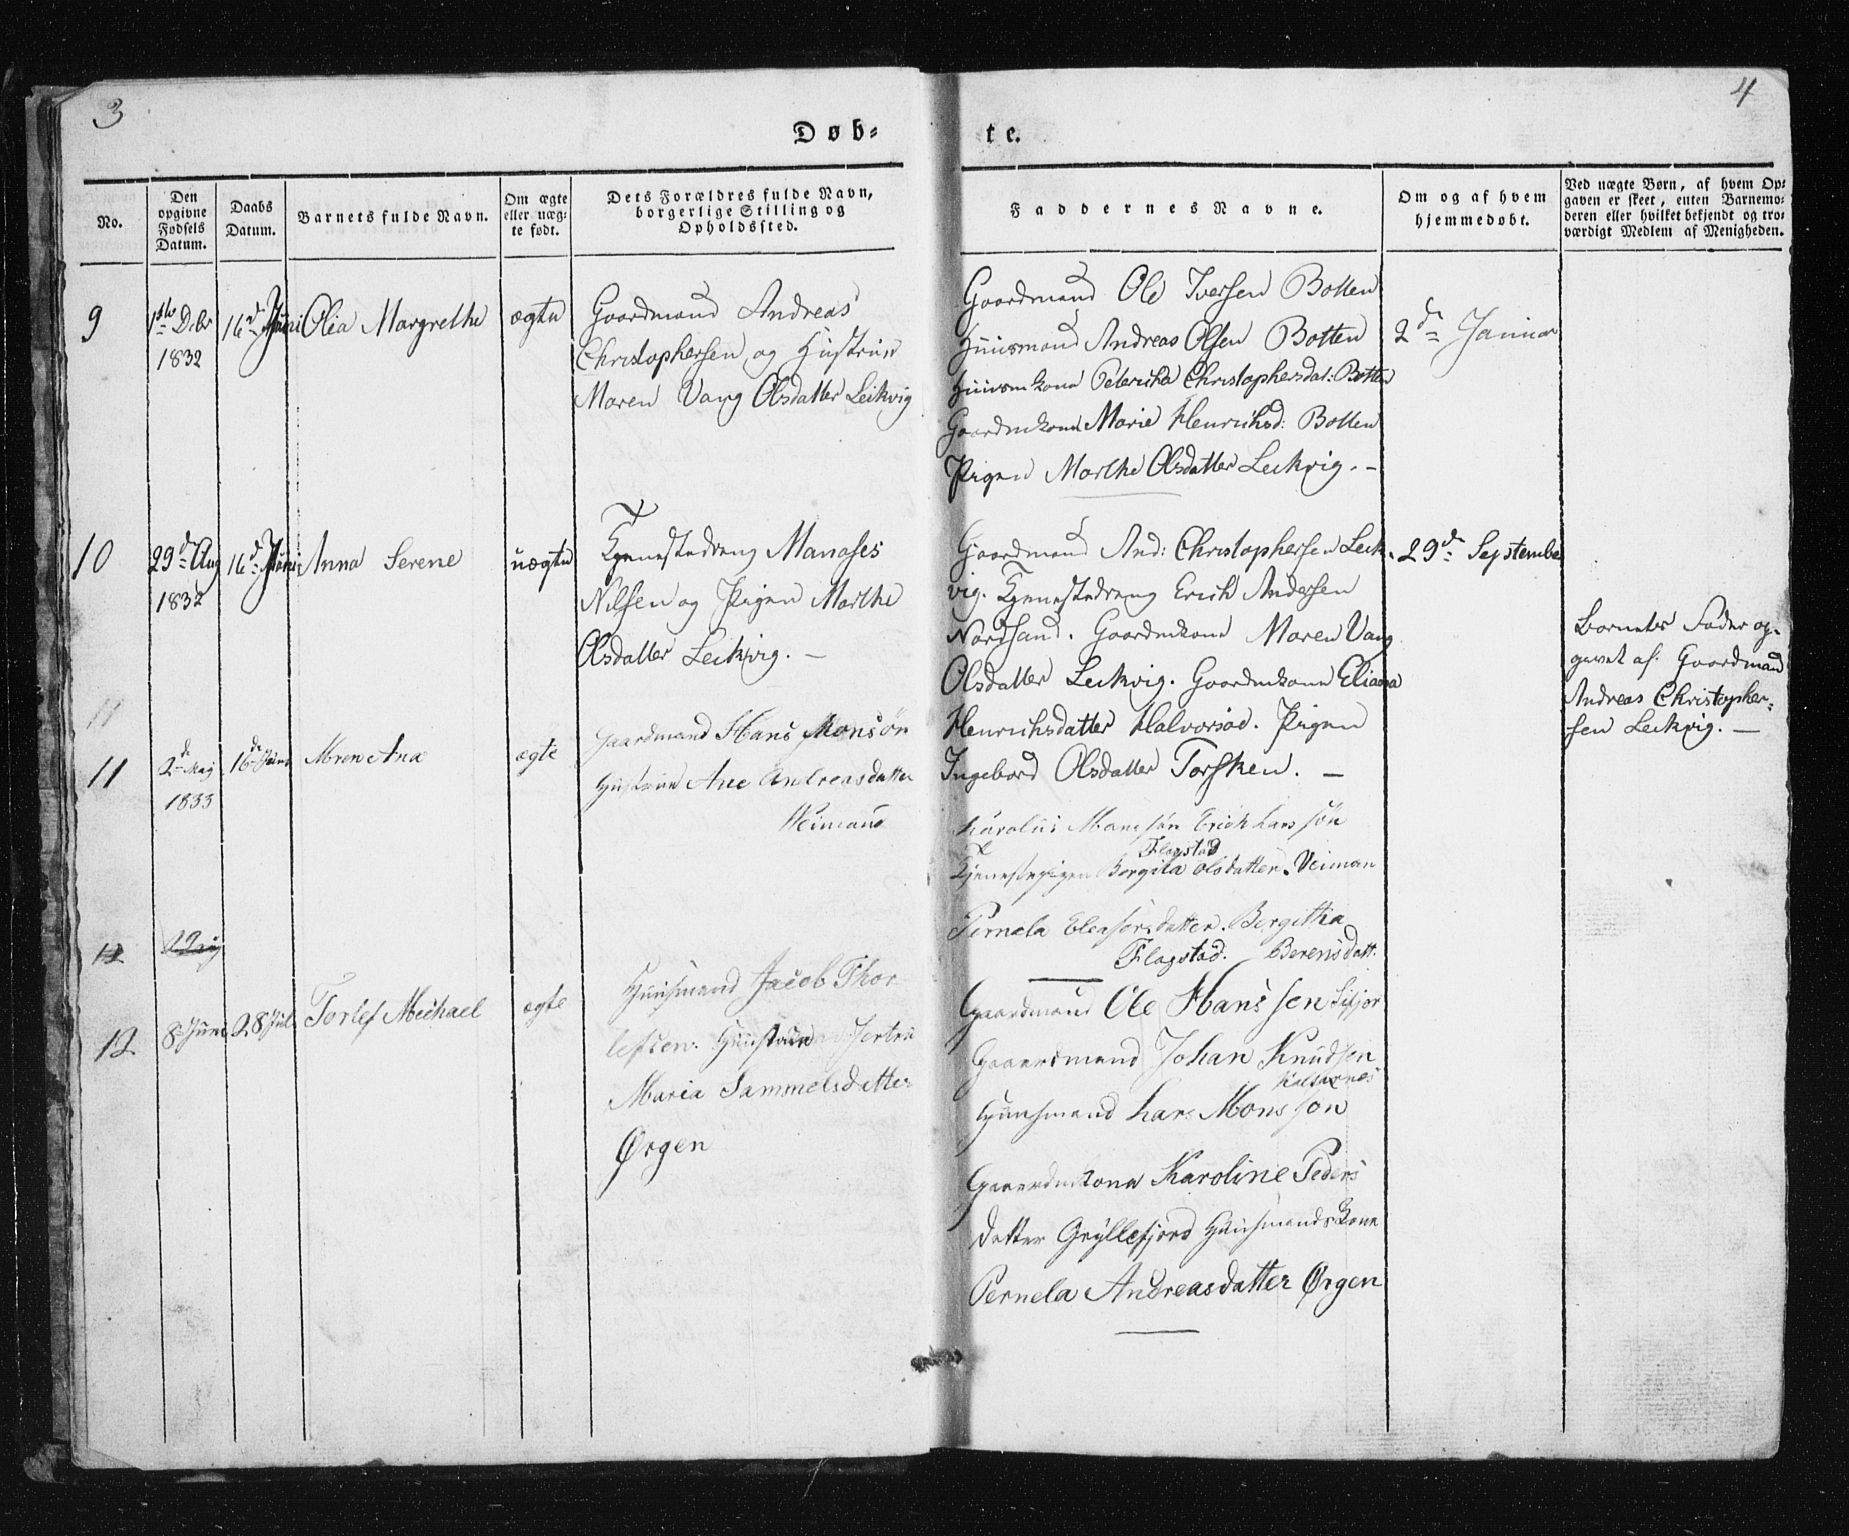 3
4
Døb-
te.
No.
Den opgivne Fødsels Datum.
Daabs Datum.
Barnets fulde Navn.
Om ægte eller uæg-te født.
Dets Forældres fulde Navn, borgerlige Stilling og Opholdssted.
Faddernes Navne.
Om og af hvem hjemmedøbt.
Ved uægte Børn, af hvem Op-gaven er skeet, enten Barnemo-deren eller hvilket bekjendt og tro-værdigt Medlem af Menigheden.
9
1ste Debr
1832
16d Juni
Olia Margrethe
ægte
Gaardmand Andreas
Christophersen og Hustrue
Maren Vang Olsdatter Leikvig
Gaardmand Ole Iversen Botten
Huusmand Andreas Olsen Botten
Huusmkone Petericka Christophersdat: Botten
Gaardmkone Marie Henrichsd: Botten
Pigen Marthe Olsdatter Leikvig. -
2d Januar
10
29d Aug
1832
16d Juni
Anna Serene
uægte
Tjenestedreng Manases
Nilsen og Pigen Marthe
Olsdatter Leikvig. -
Gaardmand And: Christophersen Leik-
vig. Tjenestedreng Erich Andersen
Nordsand. Gaardmkone Maren Vang
Olsdatter Leikvig. Gaardmkone Eliana
Henrichsdatter Halvorsøe. Pigen
Ingebord Olsdatter Torsken. -
29d September
Barnets Fader op-
givet af Gaardmand
Andreas Christopher-
sen Leikvig. -
11
11
2de Maj
1833
16de Juni
Mren Ana
ægte
Gaardmand Hans Monsøn
Hustrue Ane Andreasdatter
Weimand
Karolus Monsøn Erich Larssøn
Flagstad
Tjenestepigen Borgita Olsdatter. Veiman
Pernela Elensersdatter. Bergithia
Flagstad. Berensdatt.
12
12
8 Juni
28 Jul
Torlef Michael
ægte
Huusmand Jacob Thor
lefsen. Huustrue Jertru
Maria Sammelsdatter
Ørgen
Gaardmand Ole Hanssen Sifjor
Gaardmand Johan Knudsen
Kaldarnes
Huusmand Lars Monsson
Gaardmkone Karoline Peders
datter Gryllefjord Huusmandskone
Pernela Andreasdatter Ørgen